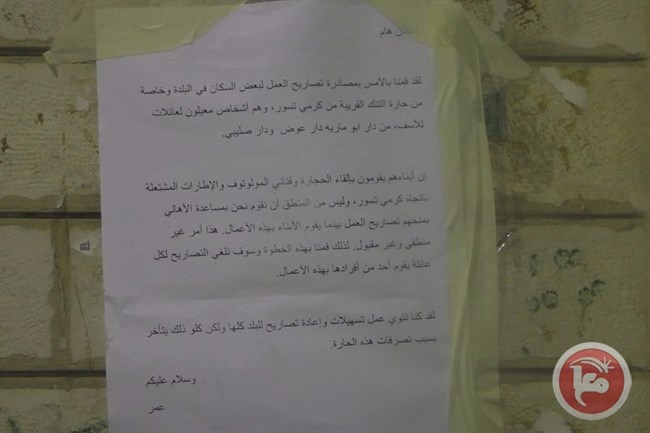 إعلان هام
لقد قمنا بالأمس بمصادرة تصاريح العمل لبعض السكان في البلدة وخاصة
من حارة التلك القريبة من كرمي تسور، وهم أشخاص معيلون لعائلات
للأسف، من دار ابو ماريه دار عوض ودار صليبي.
إن أبناءهم يقومون بإلقاء الحجارة وقناني المولوتوف والإطارات المشتعلة
باتجاه كرمي تسور، وليس من المنطلق أن نقوم نحن بمساعدة الأهالي
بمنحهم تصاريح العمل بينما يقوم الأبناء بهذه الأعمال. هذا أمر غير
منطقي وغير مقبول. لذلك قمنا بهذه الخطوة وسوف نلغي التصاريح لكل
عائلة يقوم أحد من أفرادها بهذه الأعمال.
لقد كنا ننوي عمل تسهيلات وإعادة تصاريح للبلد كلها ولكن كلو ذلك يتأخر
بسبب تصرفات هذه الحارة.
وسلام عليكم
عمر
معا